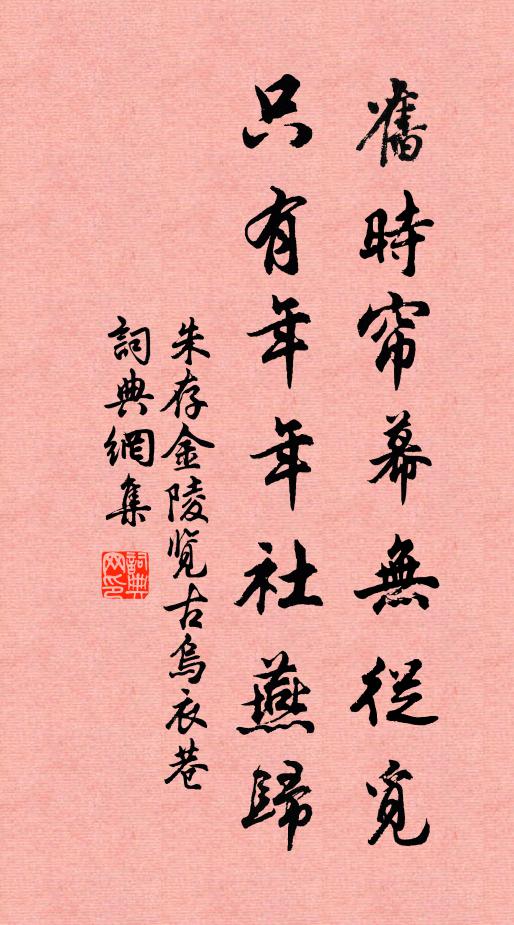 舊時帘幕無從覓
只有年年社燕歸
朱存金陵览古烏衣巷
詞典網集
詞典网印